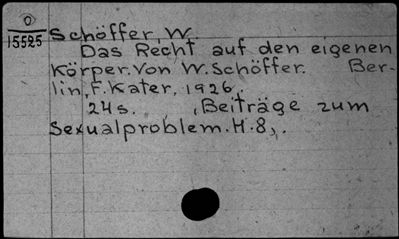 O
15525
Schöffer, W.
Das Recht auf den eigenen
Körper. Von W. Schöffer. Ber-
lin, F. Kater, 1926.
24s. (Beiträge zum
Sexualproblem. H. 8).